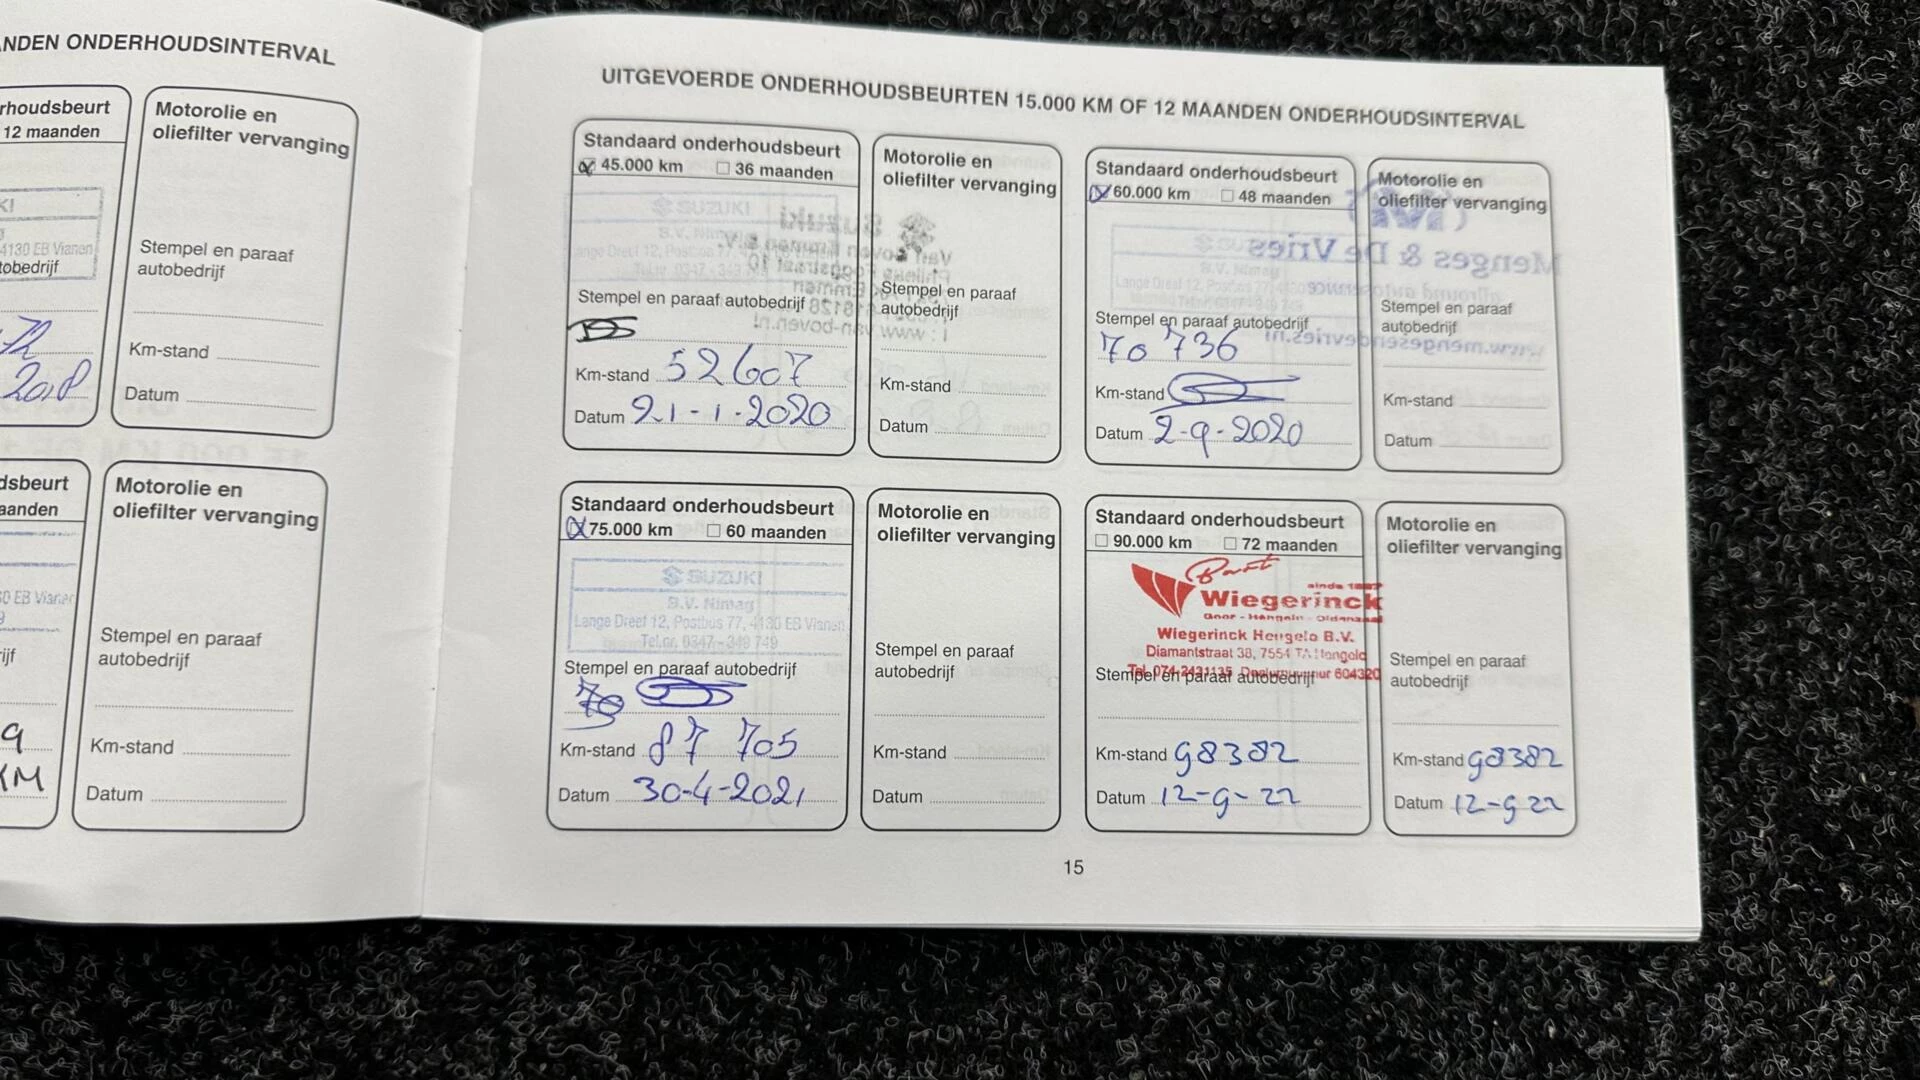 NDEN ONDERHOUDSINTERVAL
rhoudsbeurt
12 maanden
KI
4130 EB Vianen
tobedrijf
72
2018
Motorolie en
oliefilter vervanging
Stempel en paraaf
autobedrijf
Km-stand
Datum
dsbeurt
aanden
30 EB Vianen
9
ijf
9
KM
Motorolie en
oliefilter vervanging
Stempel en paraaf
autobedrijf
Km-stand
Datum
UITGEVOERDE ONDERHOUDSBEURTEN 15.000 KM OF 12 MAANDEN ONDERHOUDSINTERVAL
Standaard onderhoudsbeurt
45.000 km 36 maanden
SUZUKI
B.V. Nimag
Lange Dreef 12, Postbus 77, 4130 EB Vianen
Tel.nr. 0347 - 349 749
Stempel en paraaf autobedrijf
Km-stand 52607
Datum 21-1-2020
Motorolie en
oliefilter vervanging
Stempel en paraaf
autobedrijf
Km-stand
Datum
Standaard onderhoudsbeurt
60.000 km 48 maanden
B.V. Nimag
Lange Dreef 12, Postbus 77, 4130
Stempel en paraaf autobedrijf
70 736
Km-stand
Datum 2-9-2020
Motorolie en
oliefilter vervanging
Stempel en paraaf
autobedrijf
Km-stand
Datum
Suzuki
Van Boven Emmen B.V.
Phileas Foggstraat 10
Emmen
I: www.van-boven.nl
Menges & De Vries
allround autoservice
www.mengesendevries.nl
Standaard onderhoudsbeurt
75.000 km 60 maanden
SUZUKI
B.V. Nimag
Lange Dreef 12, Postbus 77, 4130 EB Vianen
Tel.nr. 0347 - 349 749
Stempel en paraaf autobedrijf
70
Km-stand 87 705
Datum 30-4-2021
Motorolie en
oliefilter vervanging
Stempel en paraaf
autobedrijf
Km-stand
Datum
Standaard onderhoudsbeurt
90.000 km 72 maanden
sinds
Wiegerinck
Goor - Hengelo - Oldenzaal
Wiegerinck Hengelo B.V.
Diamantstraat 38, 7554 TA Hengelo
Tel. 074-2431135 Dealernummer 604320
Stempel en paraaf autobedrijf
Km-stand 98382
Datum 12-9-22
Motorolie en
oliefilter vervanging
Stempel en paraaf
autobedrijf
Km-stand 98382
Datum 12-9 22
15